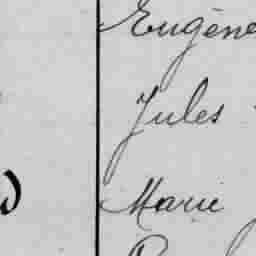 Eugène
Jules
Marie